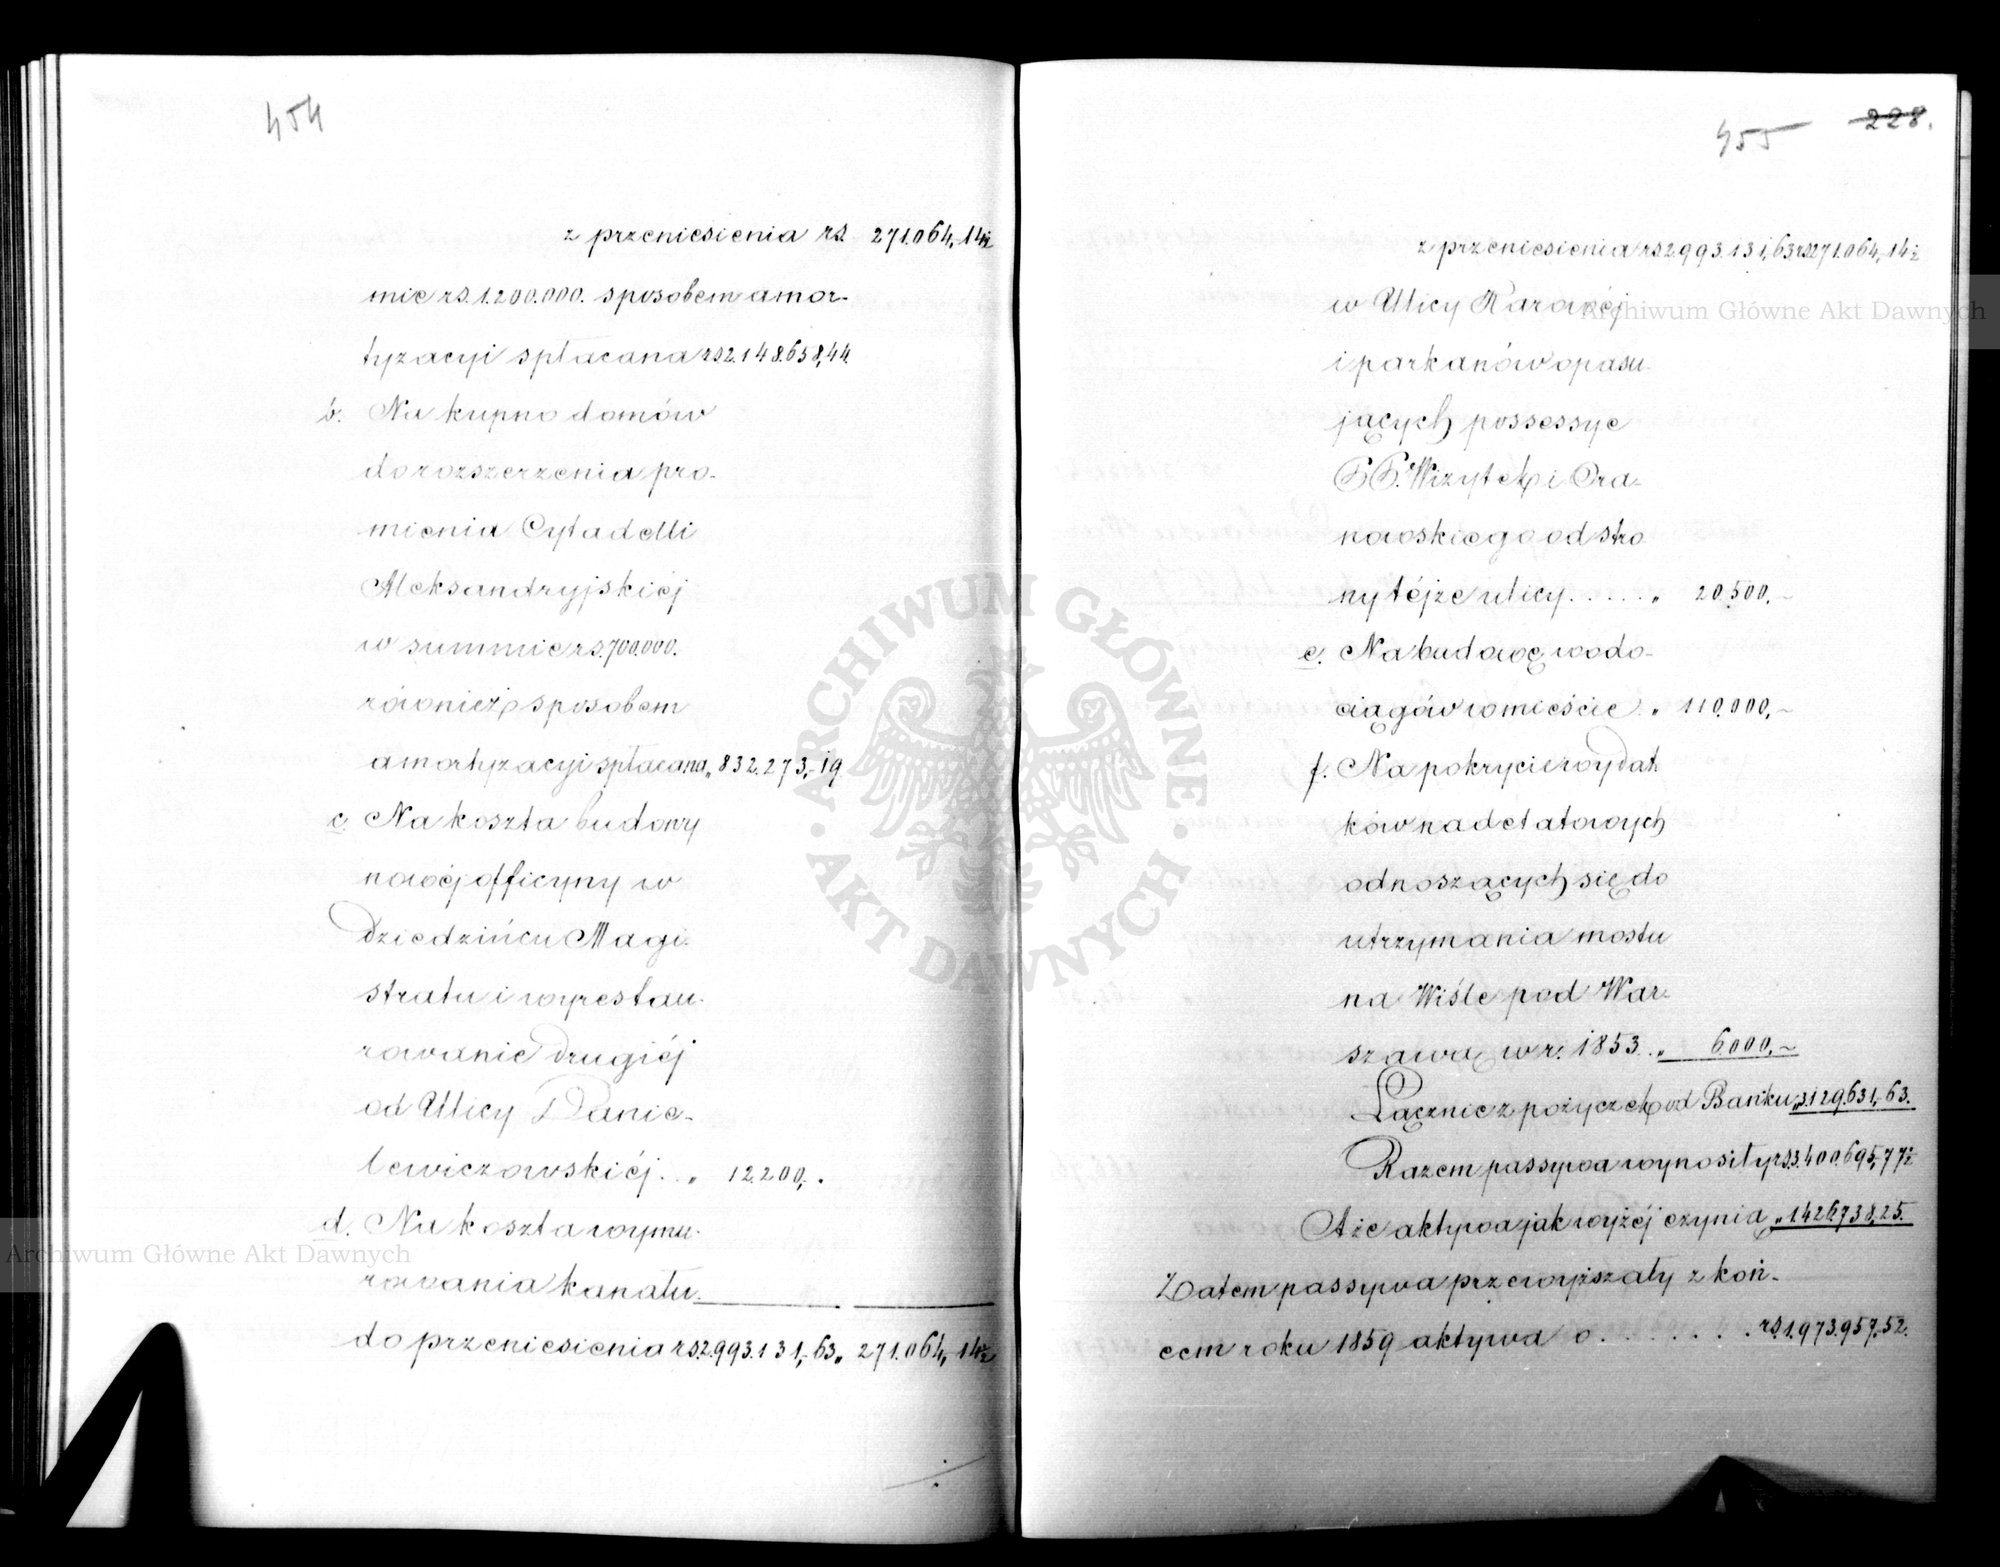 454
z przeniesienia rs. 271.064,-14½
mie rs. 1.200.000. sposobem amor-
tyzacyi spłacana rs. 2.148.658,44.
b. Na kupno domów
do rozszerzenia pro-
mienia Cytadelli
Aleksandryjskiéj
w summie rs. 700.000.
również sposobem
amortyzacyi spłacana „ 832.273,-19
c. Na koszta budowy
nowéj officyny w
Dziedzińcu Magi-
stratu i wyrestau-
rowanie drugiéj
od Ulicy Danie-
lewiczowskiéj. . „ 12.200,-.
d. Na koszta wymu-
rowania kanału.
do przeniesienia rs. 2.993.131,-63 „ 271.064,-14½
455 228.
z przeniesienia rs. 2.993.131,63 rs. 271.064,-14½
w Ulicy Karowéj
i parkanów opasu-
jących possessye
PP. Wizytek i Ora-
nowskiego od stro
ny téjże ulicy. . . . . „ 20.500,-
e. Na budowę wodo-
ciągów w mieście. „ 110.000,-
f. Na pokrycie wydat
ków nadetatowych
odnoszących się do
utrzymania mostu
na Wiśle pod War-
szawą w r. 1853. „ 6.000,-
Łącznie z pożyczek od Banku „ 3.129.631,-63.
Razem passywa wynosiły rs. 3.400.695,77½
A że aktywa jak wyżéj czynią „ 1.426.738,25.
Zatem passywa przewyższały z koń-
cem roku 1859 aktywa o . . . . . . . rs. 1.973.957,52.
Archiwum Główne Akt Dawnych
Archiwum Główne Akt Dawnych
· ARCHIWUM GŁÓWNE · AKT DAWNYCH